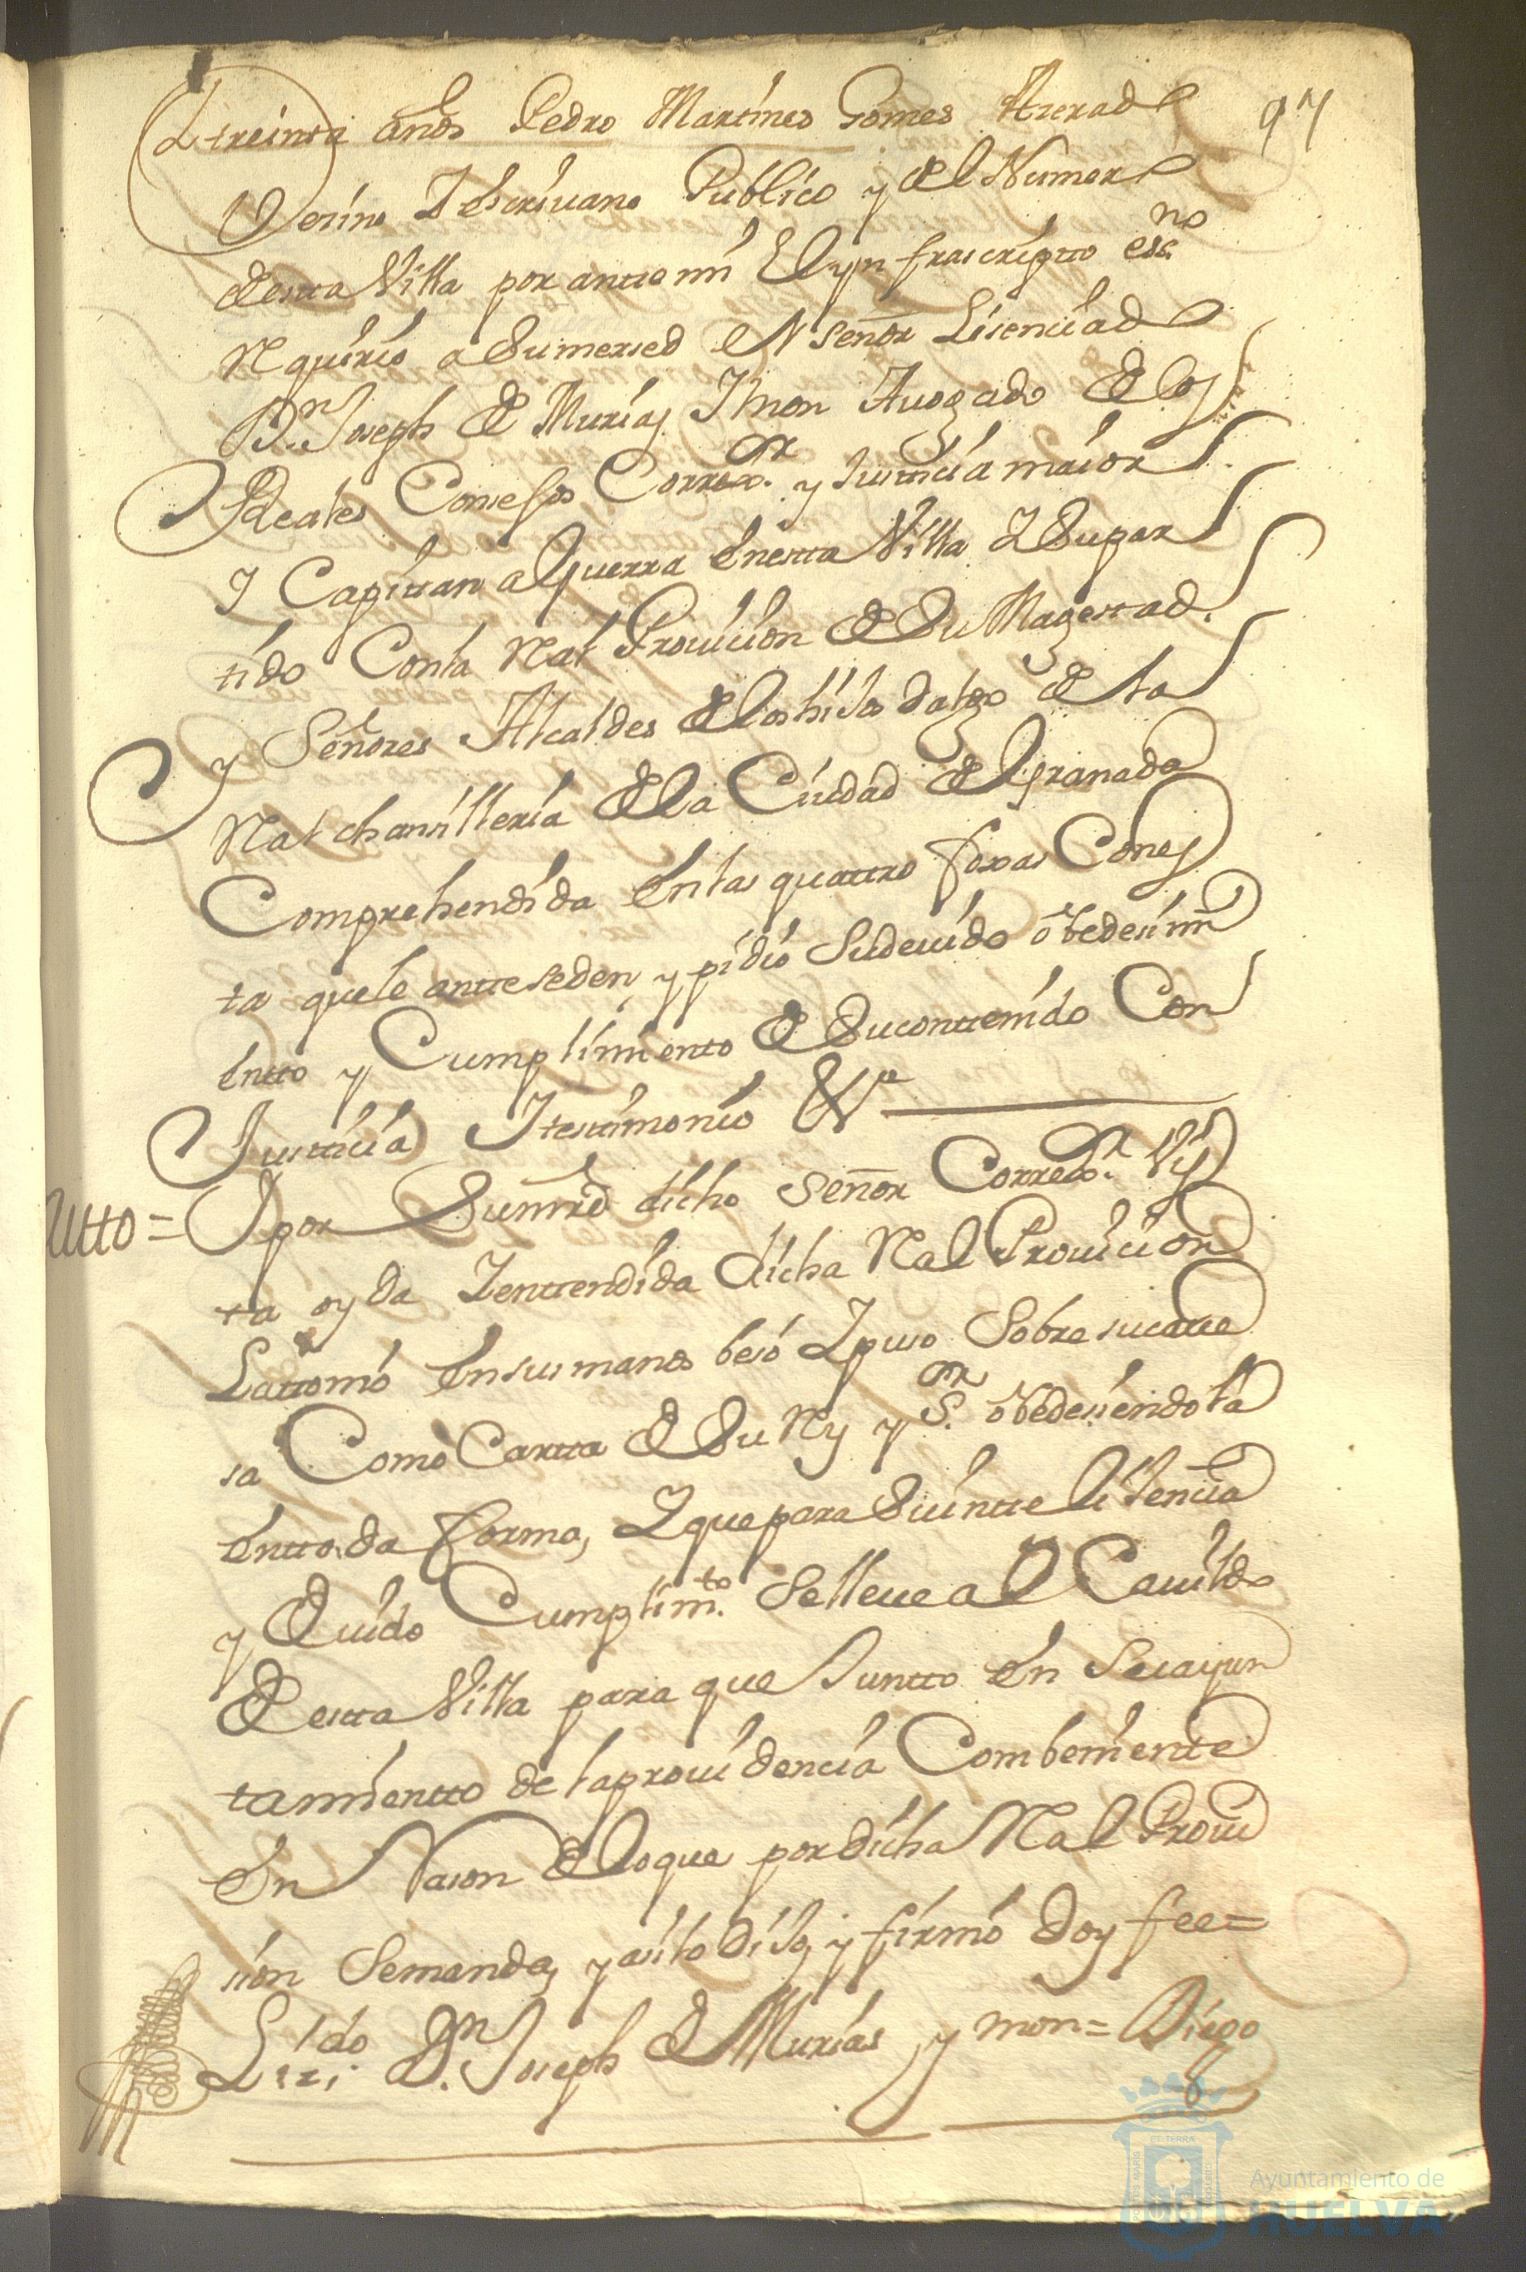 97
Y treinta años Pedro Martines Gomes Azerado
Vesino Y escriuano Publico y del Numero
desta Villa por ante mi El ynfrascripto essno
Rquirio a Sumersed El señor Lisenciado
Dn Joseph de Murias Y mon Auogado de los
Reales Consejos Correxor y Justicia maior
Y Capitan a Guerra en esta Villa Y Supar
tido Con la Ral Prouicion de Su Magestad
y Señores Alcaldes de los hijos dalgo de la
Ral chansilleria de la Ciudad de Granada
Comprehendida en las quattro foxas Cones
ta que le antteseden y pidio Sudeuido obedesimi
entto y Cumplimiento de Sucontenido Con
Justicia Y testimonio &a
Autto = Y por Sumrd dicho señor Corredor Vis
ta oyda Y entendida dicha Ral Prouicion
La tomó en sus manos besó Y puso Sobre sucaue
sa Como Cartta de Su Rey y Sor obedesiendola
en ttoda forma, Y que para Suintteligencia
y deuido Cumplimto Selleue al Cauildo
desta Villa para que Juntto en Su ayun
tamientto de la prouidencia Combeniente
en Rason de lo que por dicha Ral Proui
sion Semanda, y asilo dijo, y firmó doy fee =
Lizdo Dn Joseph de Murias y mon = Diego
Ayuntamiento de
HUELVA